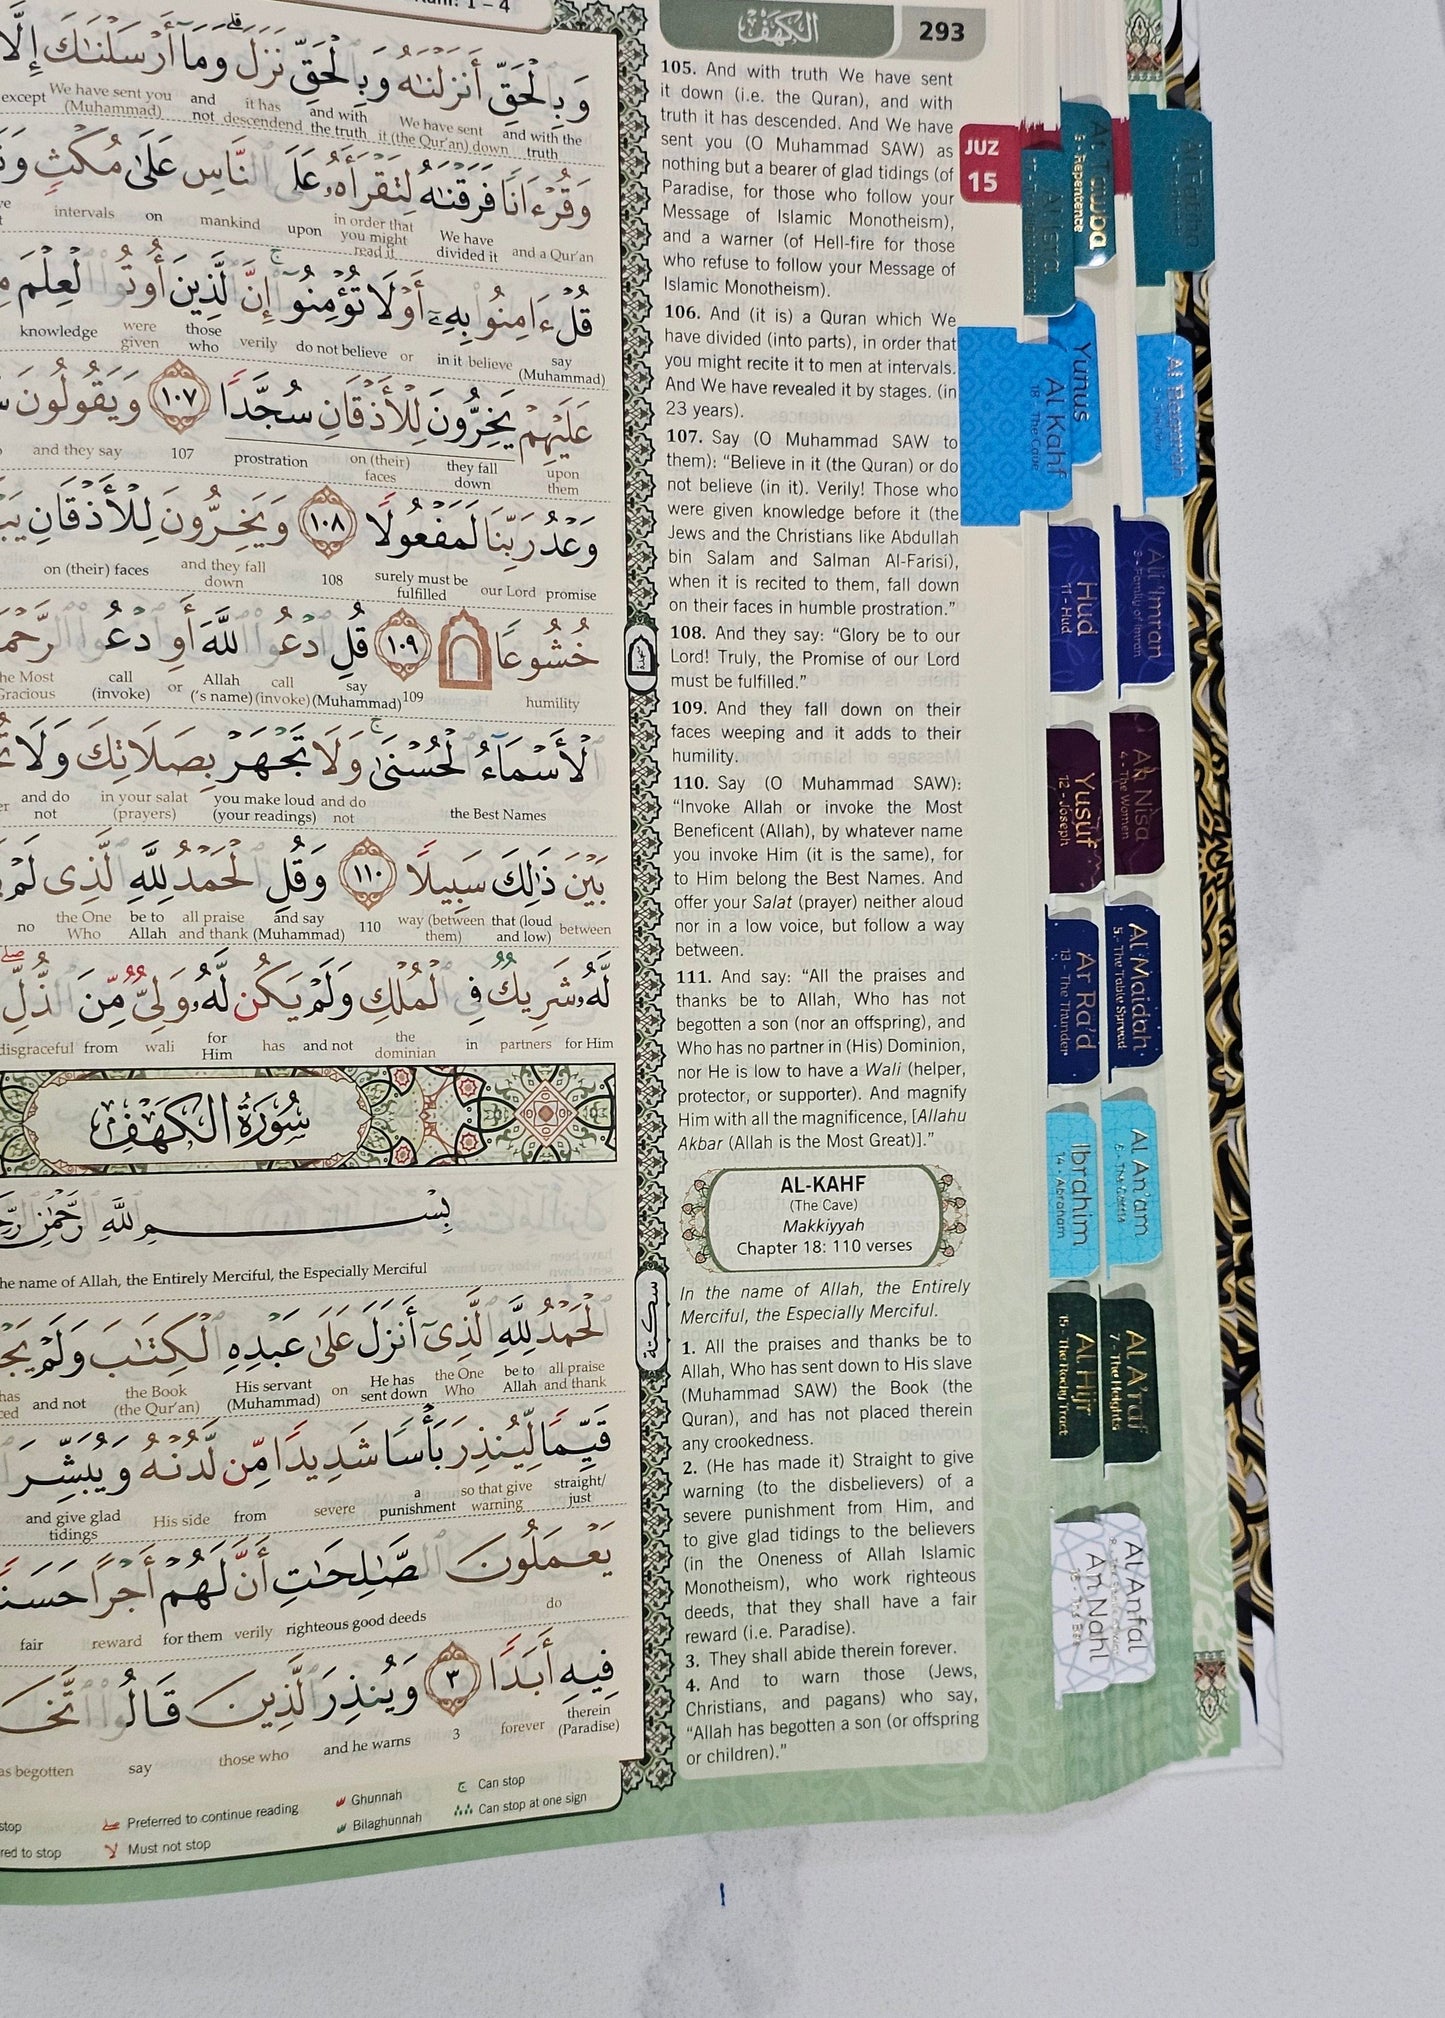 الكهف
293
105. And with truth We have sent
it down (i.e. the Quran), and with
truth it has descended. And We have
sent you (O Muhammad SAW) as
nothing but a bearer of glad tidings (of
Paradise, for those who follow your
Message of Islamic Monotheism),
and a warner (of Hell-fire for those
who refuse to follow your Message of
Islamic Monotheism).
106. And (it is) a Quran which We
have divided (into parts), in order that
you might recite it to men at intervals.
And We have revealed it by stages. (in
23 years).
107. Say (O Muhammad SAW to
them): “Believe in it (the Quran) or do
not believe (in it). Verily! Those who
were given knowledge before it (the
Jews and the Christians like Abdullah
bin Salam and Salman Al-Farisi),
when it is recited to them, fall down
on their faces in humble prostration.”
108. And they say: “Glory be to our
Lord! Truly, the Promise of our Lord
must be fulfilled.”
109. And they fall down on their
faces weeping and it adds to their
humility.
110. Say (O Muhammad SAW):
“Invoke Allah or invoke the Most
Beneficent (Allah), by whatever name
you invoke Him (it is the same), for
to Him belong the Best Names. And
offer your Salat (prayer) neither aloud
nor in a low voice, but follow a way
between.
111. And say: “All the praises and
thanks be to Allah, Who has not
begotten a son (nor an offspring), and
Who has no partner in (His) Dominion,
nor He is low to have a Wali (helper,
protector, or supporter). And magnify
Him with all the magnificence, [Allahu
Akbar (Allah is the Most Great)].”
AL-KAHF
(The Cave)
Makkiyyah
Chapter 18: 110 verses
In the name of Allah, the Entirely
Merciful, the Especially Merciful.
1. All the praises and thanks be to
Allah, Who has sent down to His slave
(Muhammad SAW) the Book (the
Quran), and has not placed therein
any crookedness.
2. (He has made it) Straight to give
warning (to the disbelievers) of a
severe punishment from Him, and
to give glad tidings to the believers
(in the Oneness of Allah Islamic
Monotheism), who work righteous
deeds, that they shall have a fair
reward (i.e. Paradise).
3. They shall abide therein forever.
4. And to warn those (Jews,
Christians, and pagans) who say,
“Allah has begotten a son (or offspring
or children).”
وَبِالْحَقِّ أَنزَلْنَٰهُ وَبِالْحَقِّ نَزَلَ وَمَآ أَرْسَلْنَٰكَ إِلَّا
except We have sent you (Muhammad) and not it has descendend and with the truth We have sent it (the Qur'an) down and with the truth
وَقُرْءَانًا فَرَقْنَٰهُ لِتَقْرَأَهُۥ عَلَى النَّاسِ عَلَىٰ مُكْثٍ
intervals on mankind upon in order that you might read it We have divided it and a Qur'an
قُلْ ءَامِنُوا بِهِۦٓ أَوْ لَا تُؤْمِنُوٓا إِنَّ الَّذِينَ أُوتُوا الْعِلْمَ
knowledge were given those who verily do not believe or in it believe say (Muhammad)
عَلَيْهِمْ يَخِرُّونَ لِلْأَذْقَانِ سُجَّدًا ١٠٧ وَيَقُولُونَ
and they say 107 prostration on (their) faces they fall down upon them
وَعْدُ رَبِّنَا لَمَفْعُولًا ١٠٨ وَيَخِرُّونَ لِلْأَذْقَانِ
on (their) faces and they fall down 108 surely must be fulfilled our Lord promise
خُشُوعًا ١٠٩ قُلِ ادْعُوا اللَّهَ أَوِ ادْعُوا
call (invoke) or Allah ('s name) call (invoke) say (Muhammad) 109 humility
الْأَسْمَآءُ الْحُسْنَىٰ وَلَا تَجْهَرْ بِصَلَاتِكَ وَلَا
and do not in your salat (prayers) you make loud (your readings) and do not the Best Names
بَيْنَ ذَٰلِكَ سَبِيلًا ١١٠ وَقُلِ الْحَمْدُ لِلَّهِ الَّذِى لَمْ
no the One Who be to Allah all praise and thank and say (Muhammad) 110 way (between them) that (loud and low) between
لَّهُۥ شَرِيكٌ فِى الْمُلْكِ وَلَمْ يَكُن لَّهُۥ وَلِىٌّ مِّنَ الذُّلِّ
disgraceful from wali for Him has and not the dominian in partners for Him
سُورَةُ الكَهْفِ
بِسْمِ اللَّهِ الرَّحْمَٰنِ
the name of Allah, the Entirely Merciful, the Especially Merciful
الْحَمْدُ لِلَّهِ الَّذِىٓ أَنزَلَ عَلَىٰ عَبْدِهِ الْكِتَٰبَ وَلَمْ
and not the Book (the Qur'an) His servant (Muhammad) on He has sent down the One Who be to Allah all praise and thank
قَيِّمًا لِّيُنذِرَ بَأْسًا شَدِيدًا مِّن لَّدُنْهُ وَيُبَشِّرَ
and give glad tidings His side from severe a punishment so that give warning straight/ just
يَعْمَلُونَ الصَّٰلِحَٰتِ أَنَّ لَهُمْ أَجْرًا حَسَنًا
fair reward for them verily righteous good deeds do
فِيهِ أَبَدًا ٣ وَيُنذِرَ الَّذِينَ قَالُوا
as begotten say those who and he warns 3 forever therein (Paradise)
Preferred to continue reading
Must not stop
Ghunnah
Bilaghunnah
Can stop
Can stop at one sign
سجدة
سكتة
JUZ
15
At Tawba
9 - Repentance
Yunus
Al Kahf
18 - The Cave
Hud
11 - Hud
Yusuf
12 - Joseph
Ar Ra'd
13 - The Thunder
Ibrahim
14 - Abraham
Al Hijr
15 - The Rocky Tract
An Nahl
Al Baqarah
Ali 'Imran
3 - Family of Imran
An Nisa
4 - The Women
Al Maidah
5 - The Table Spread
Al An'am
Al A'raf
7 - The Heights
Al Anfal